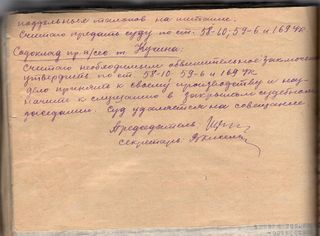 поддельных талонов на питание.
Считаю предать суду по ст. 58-10, 59-6 и 169 УК
Содоклад
Считаю необходимым обвинительное заключ
утвердить по ст. 58-10 59-6 и 169 УК
дело принять к своему производству и наз
начить к слушанию в закрытом судебном
заседании. Суд удаляется на совещание
Председатель
секретарь